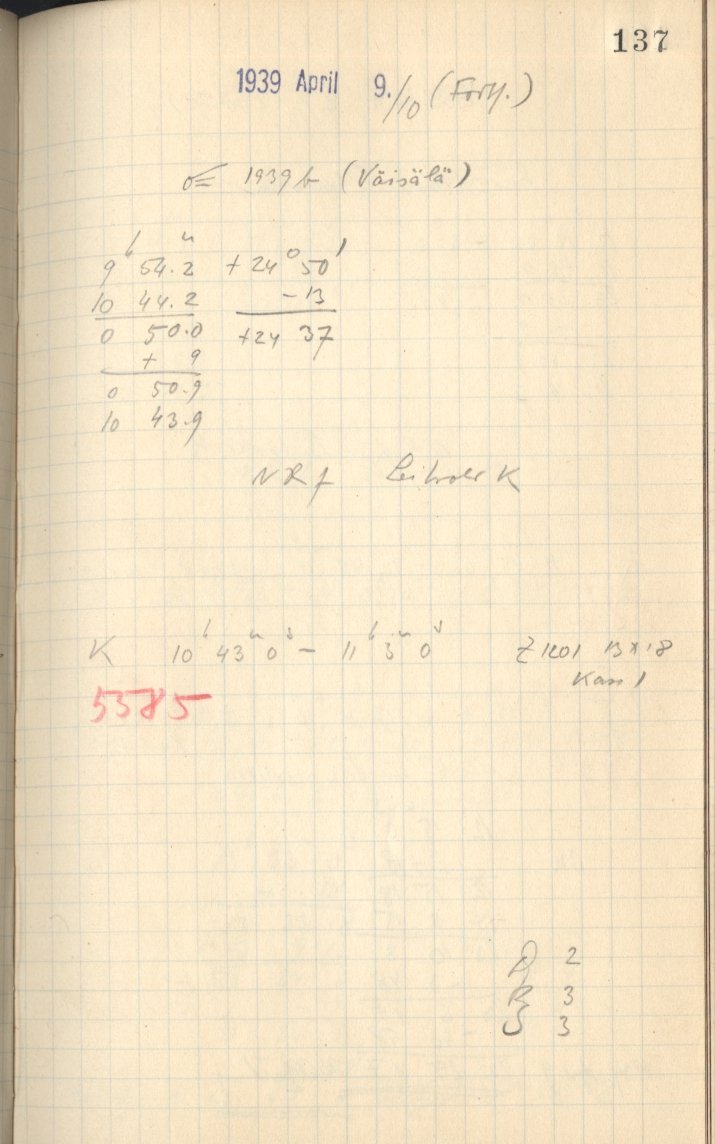 137
1939 April 9./10 (Forts.)
☄ 1939 b (Väisälä)
9ʰ 54.2ᵐ +24° 50'
10 44.2 -13
0 50.0 +24 37
+ 9
0 50.9
10 43.9
Leitrohr K
K 10ʰ 43ᵐ 0ˢ - 11ʰ 3ᵐ 0ˢ Z 1201 13 x 18
Kass 1
5385
D 2
R 3
S 3